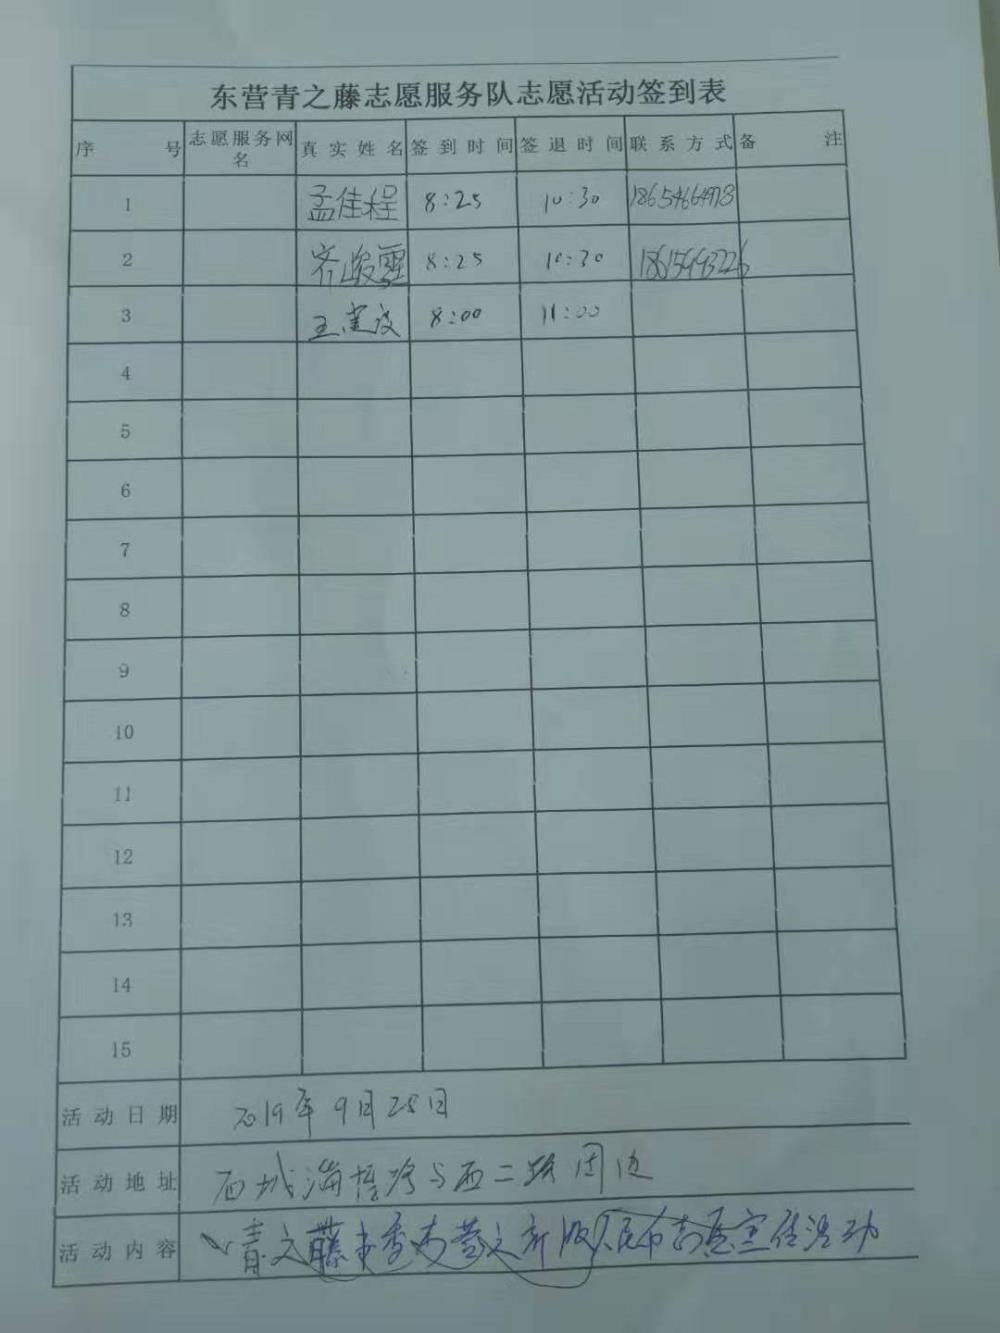 东营青之藤志愿服务队志愿活动签到表
序 号 志愿服务网名 真实姓名 签到时间 签退时间 联系方式 备 注
1 孟佳程 8:25 10:30
2 8:25 10:30 18615993226
3 王 8:00 11:00
4
5
6
7
8
9
10
11
12
13
14
15
活动日期 2019年9月28日
活动地址 西城淄博路与西二路周边
活动内容 青之藤 宣传活动